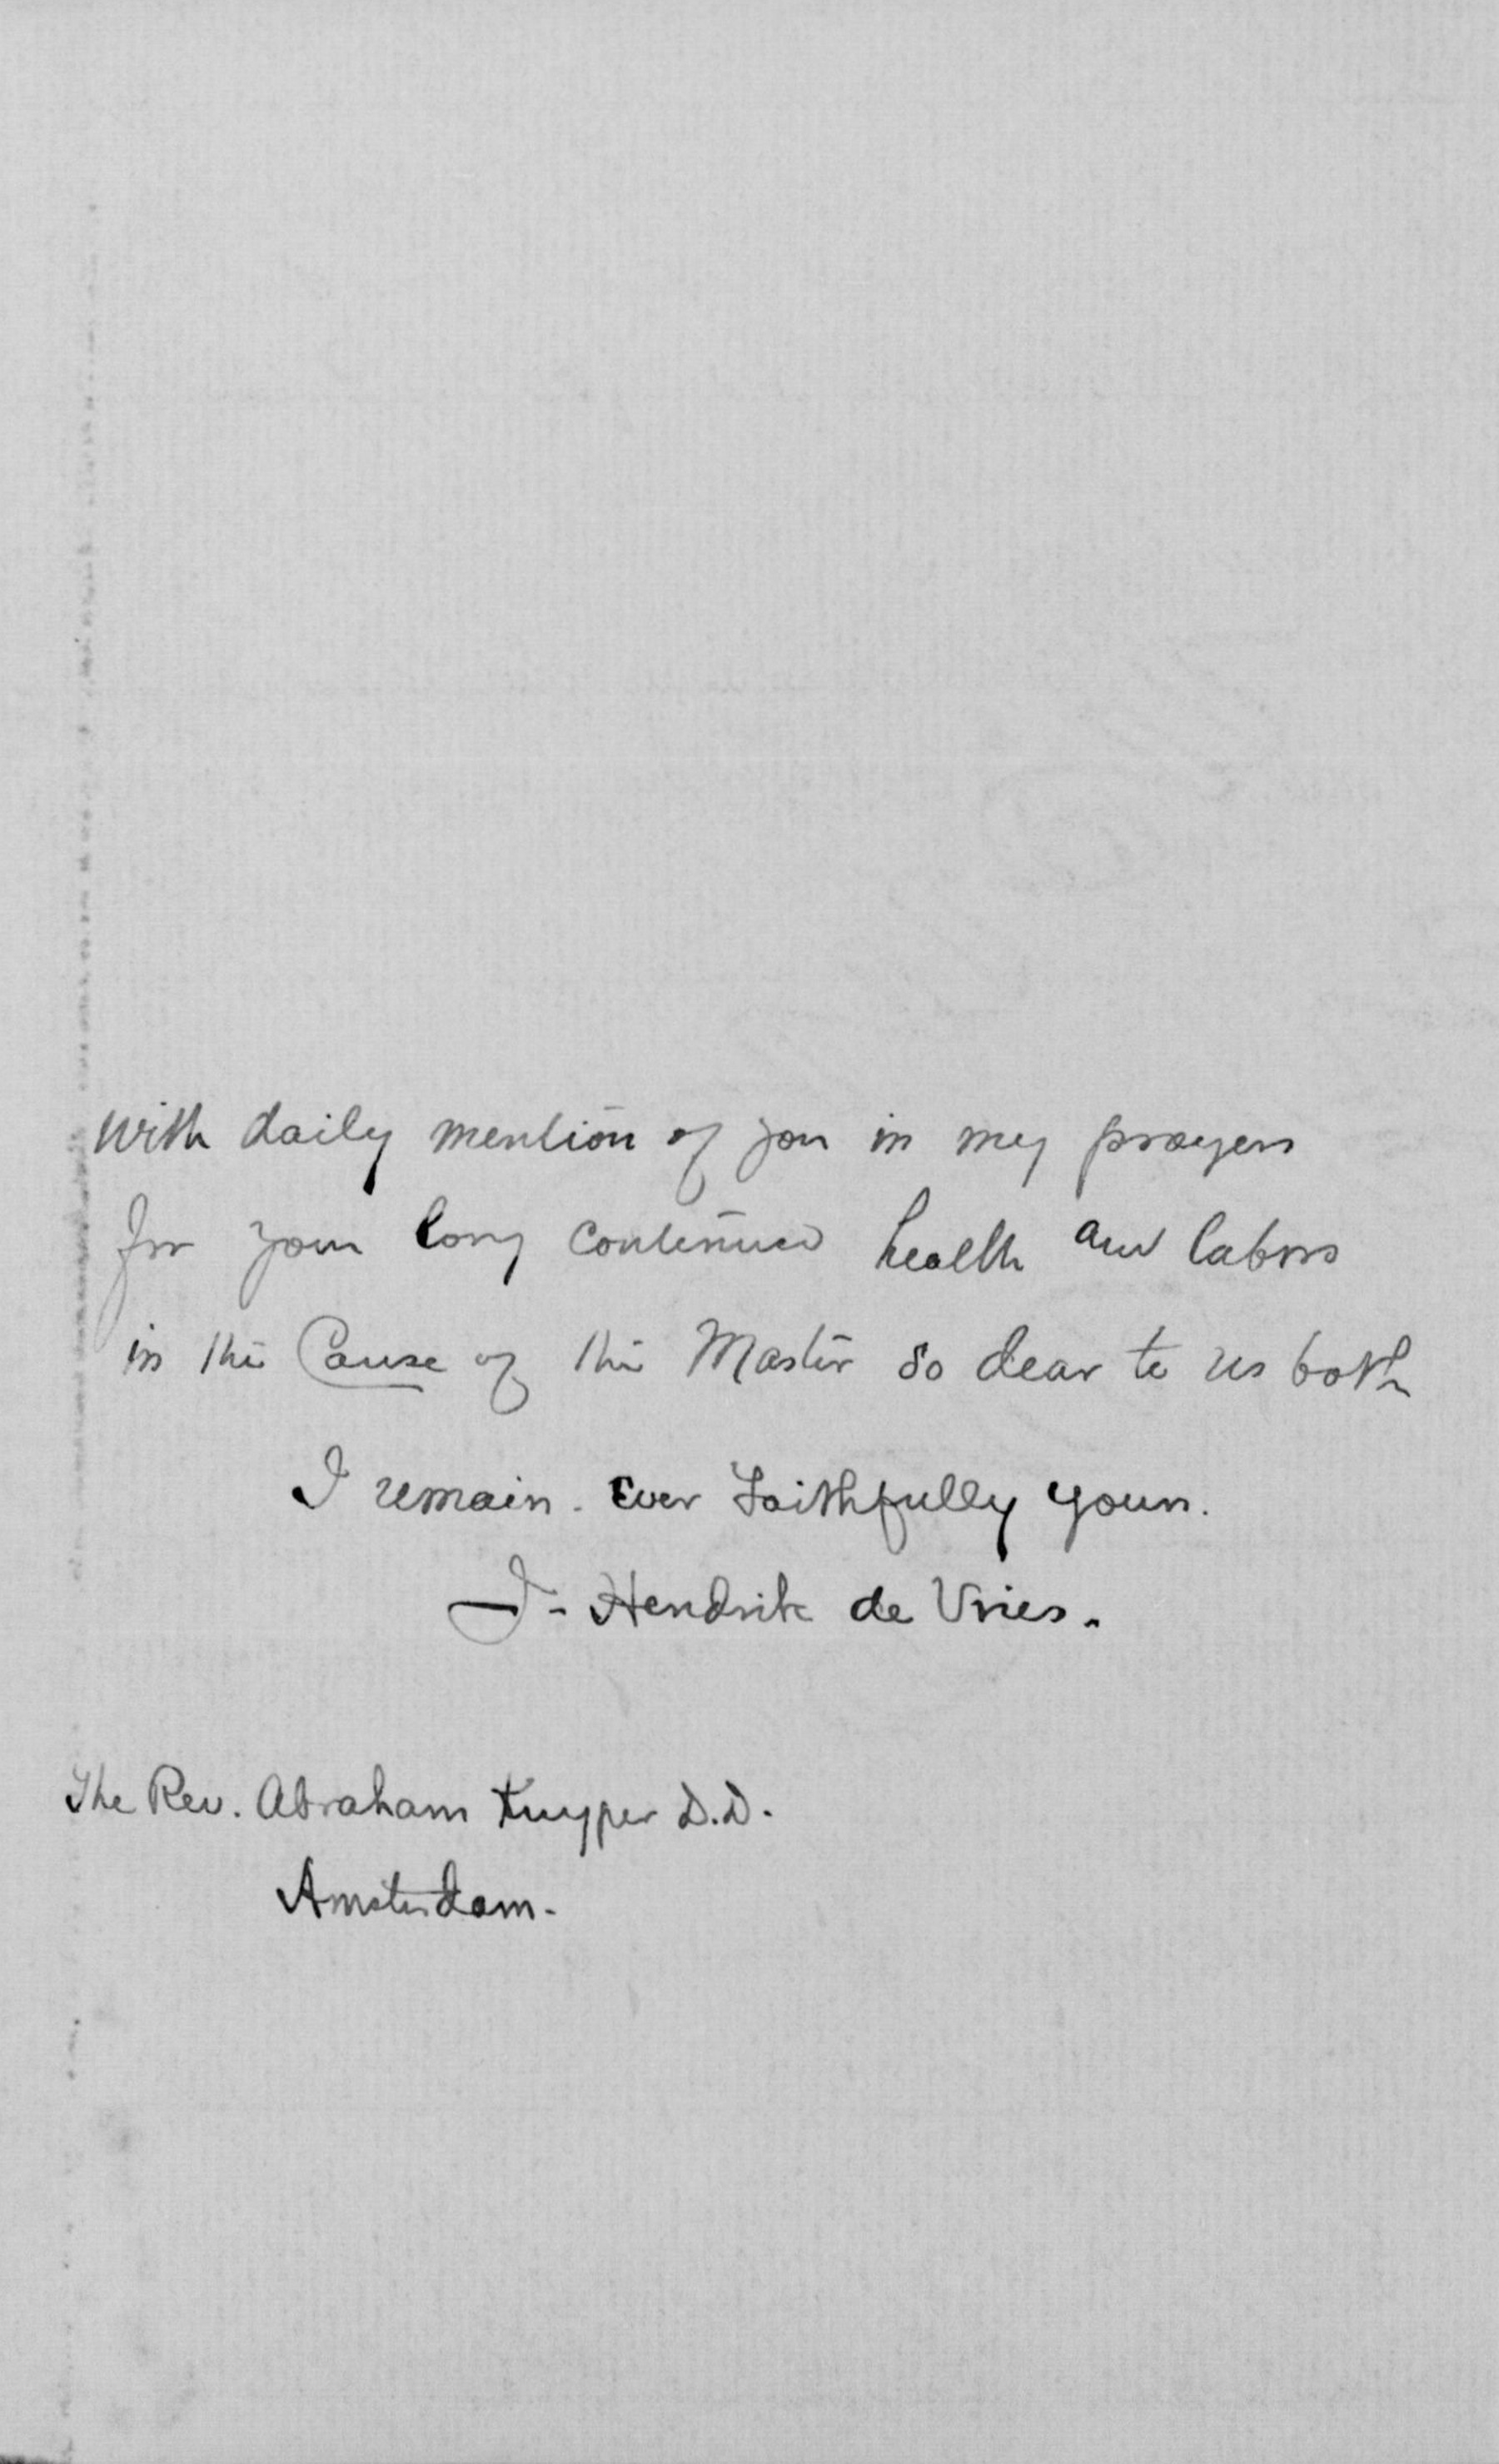 with daily mention of you in my prayers
for your long continued health and labors
in the Cause of the Master so dear to us both
I remain. Ever faithfully yours.
J- Hendrik de Vries.
The Rev. Abraham Kuyper D.D.
Amsterdam.